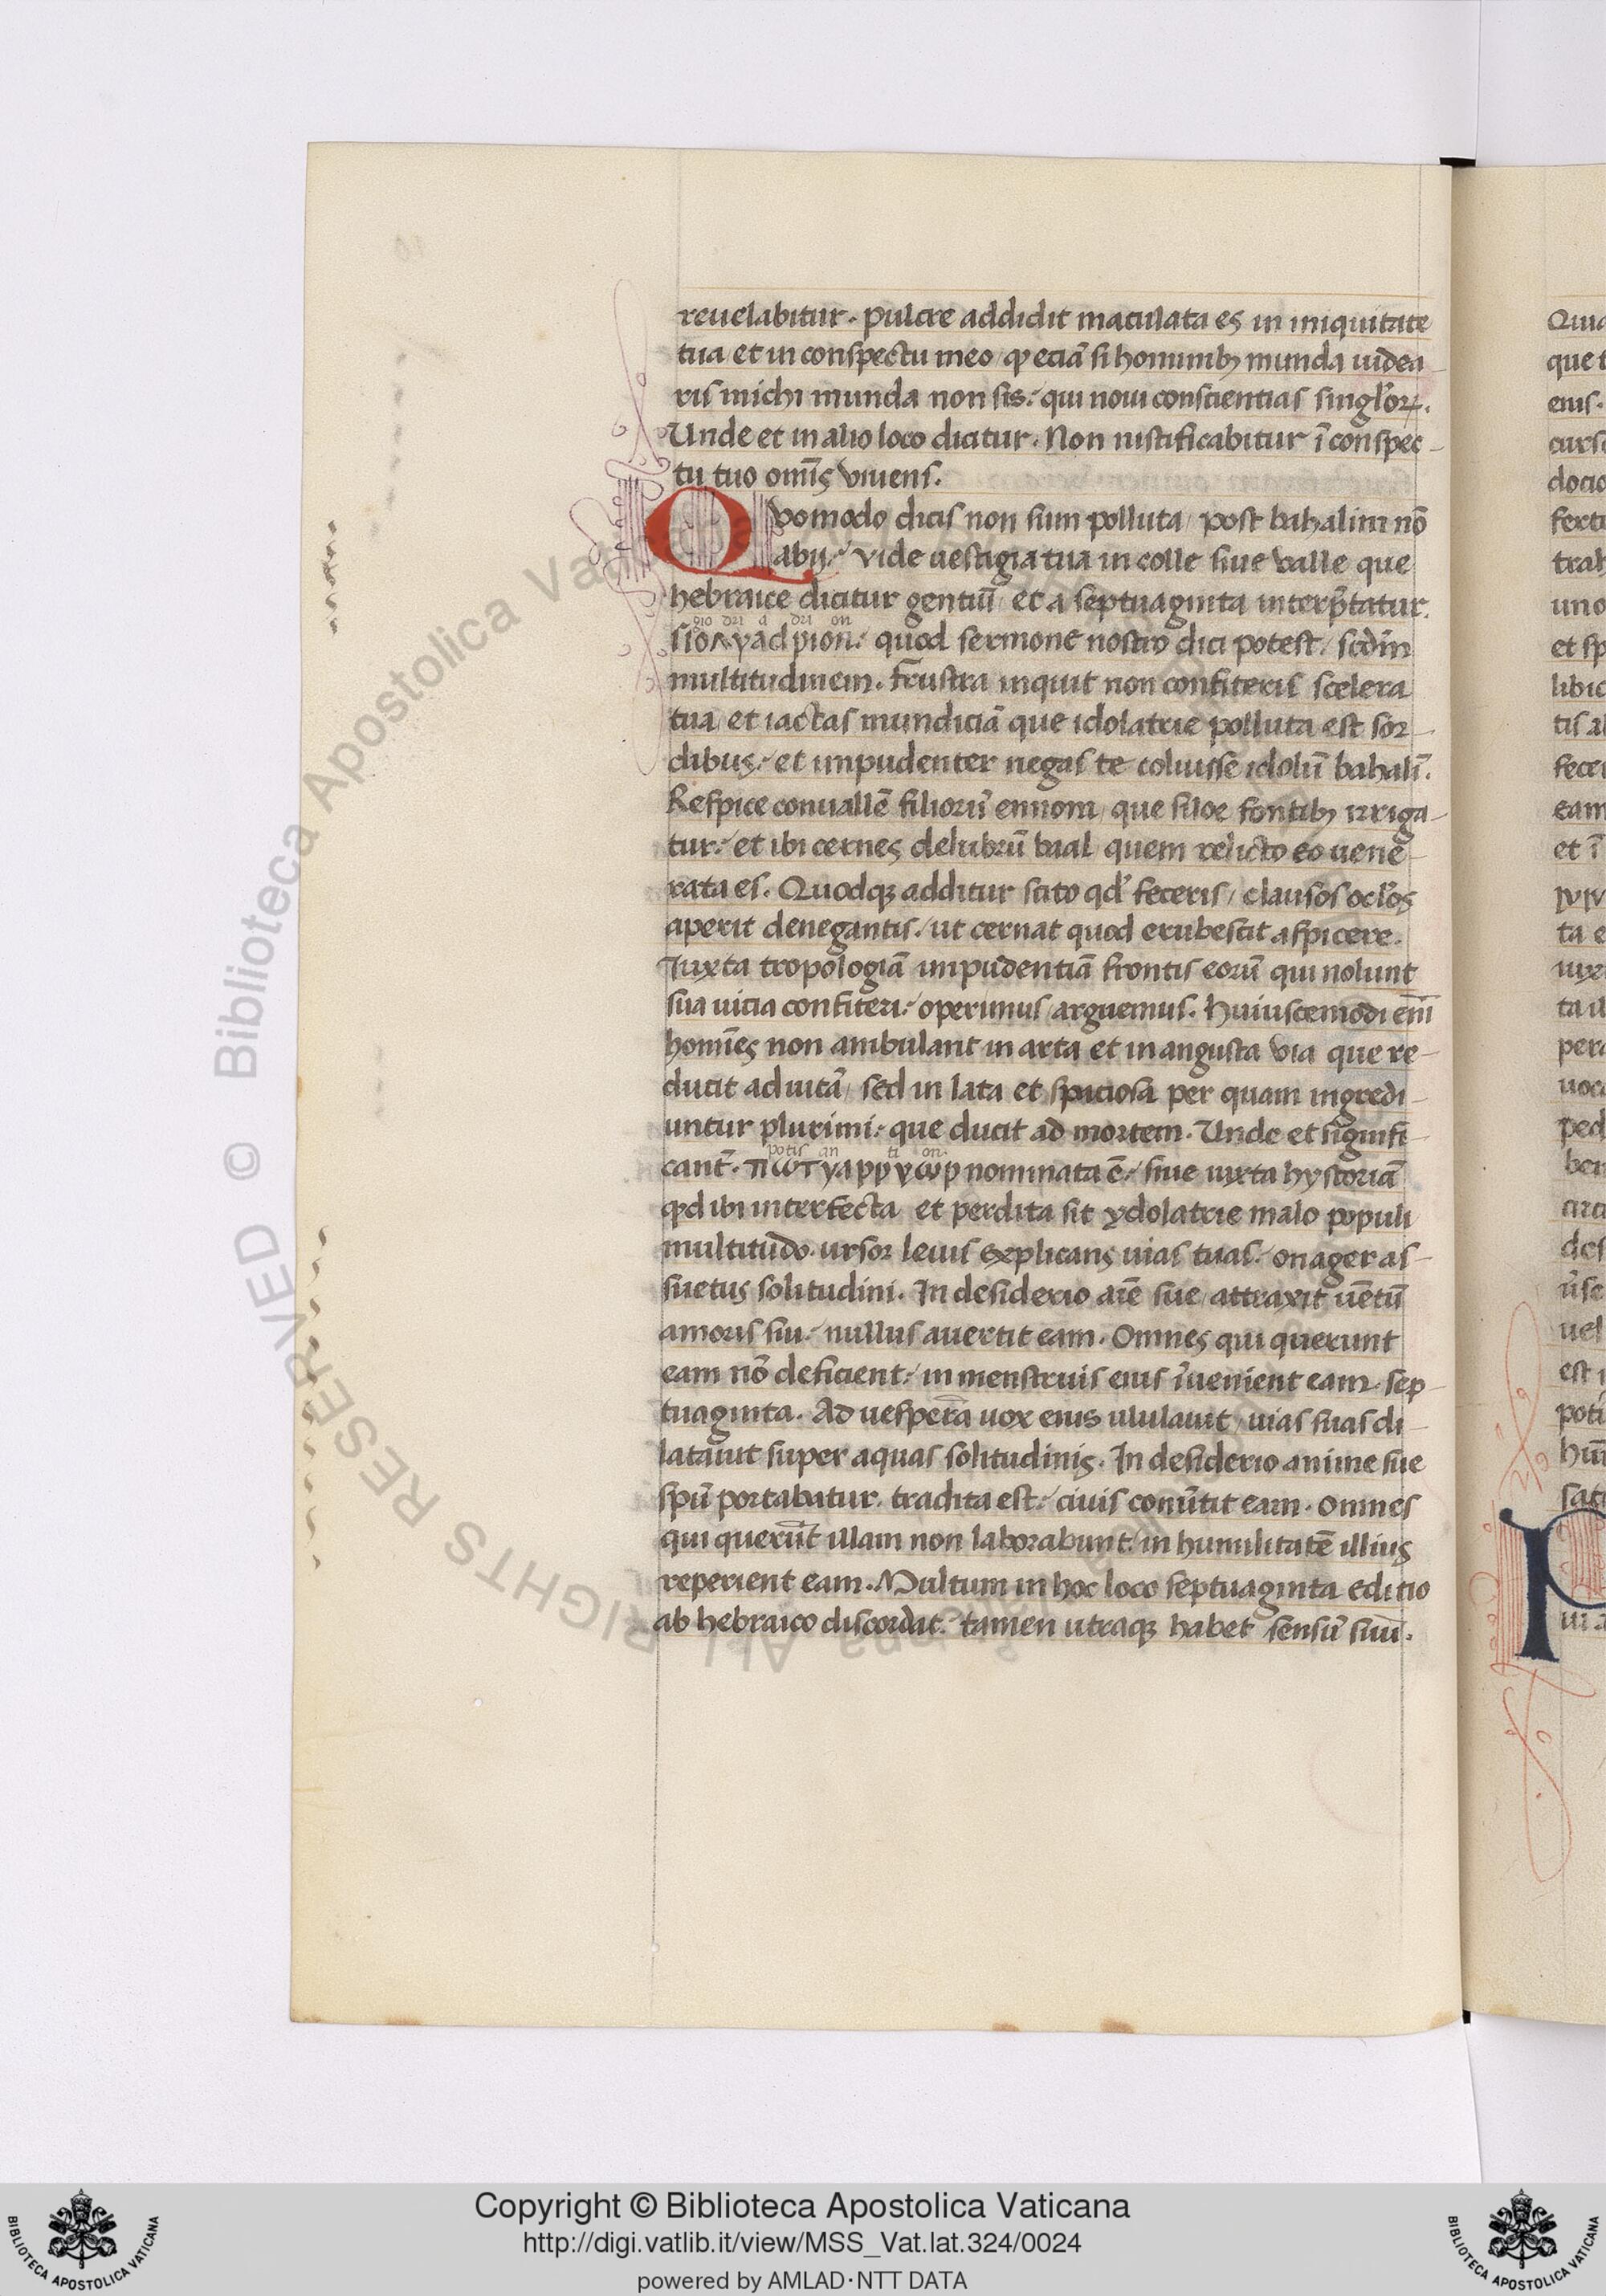 reuelabitur. Pulcre addidit maculata es in iniquitate
tua / et in conspectu meo / ꝙ eciā si hominibꝫ munda uidea-
ris michi munda non sis: qui noui conscientias singl'oꝝ.
Unde et in alio loco dicitur. Non iustificabitur ī conspec-
tu tuo omīs viuens.
Qvomodo dicis non sum polluta / post bahalim nō
abij: vide uestigia tua in colle siue valle que
hebraice dicitur gentiū / et a septuaginta interp̄tatur.
gio dri a dri on
quod sermone nostro dici potest / scdm̄
multitudinem. Frustra inquit non confiteris scelera
tua / et iactas mundiciā que idolatrie polluta est sor-
dibus: et impudenter negas te coluisse idolū bahalī.
Respice conuallē filiorū ennom / que siloe fontibꝫ irriga-
tur: et ibi cernes delubrū baal / quem relicto eo uene-
rata es. Quodqꝫ additur scito qd' feceris / clausos ocl'os
aperit denegantis / ut cernat quod erubescit aspicere.
Iuxta tropologiā impudentiā frontis eorū qui nolunt
sua uicia confiteri: operimus / arguemus. Huiuscemodi enī
homīes non ambulant in arta et in angusta via que re-
ducit ad uitā / sed in lata et spiciosa per quam ingredi-
untur plurimi: que ducit ad mortem. Unde et signifi-
potis an ti on
cant̄. nominata ē: siue iuxta hystoriā
ꝙd ibi interfecta et perdita sit ydolatrie malo populi
multitudo. ursor leuis explicans uias tuas: onager as-
suetus solitudini. In desiderio aīe sue attraxit uētū
amoris sui: nullus auertit eam. Omnes qui querunt
eam nō deficient: in menstruis eius īuenient eam. sep-
tuaginta. Ad uesperā uox eius ululauit / uias suas di-
latauit super aquas solitudinis. In desiderio anime sue
spū portabatur. tradita est: ciuis conūtit eam. Omnes
qui querūt illam non laborabunt: in humilitatē illius
reperient eam. Multum in hoc loco septuaginta editio
ab hebraico discordat: tamen utraqꝫ habet sensū suū.
Copyright © Biblioteca Apostolica Vaticana
http://digi.vatlib.it/view/MSS_Vat.lat.324/0024
powered by AMLAD·NTT DATA